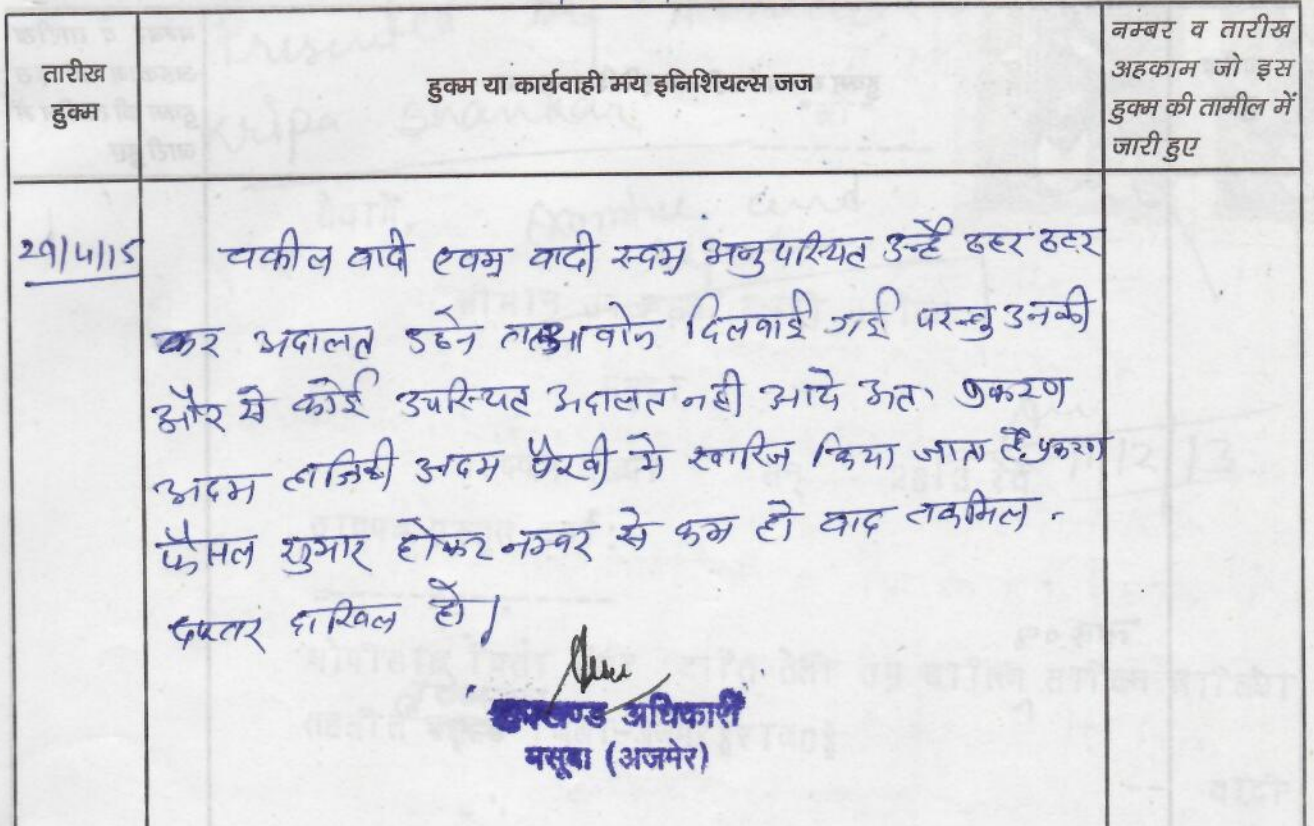 तारीख
हुक्म
हुक्म या कार्यवाही मय इनिशियल्स जज
नम्बर व तारीख
अहकाम जो इस
हुक्म की तामील में
जारी हुए
29/4/15
वकील वादी एवम् वादी स्वयम् अनुपस्थित उन्हें ठहर ठहर
कर अदालत आवाजे दिलवाई गई परन्तु उनकी
और से कोई उपस्थित अदालत नही आये अतः प्रकरण
अदम हाजिरी अदम पैरवी मे खारिज किया जाता है, प्रकरण
फैसल शुमार होकर नम्बर से कम हो बाद तकमिल
दफ्तर दाखिल हो।
उपखण्ड अधिकारी
मसूदा (अजमेर)